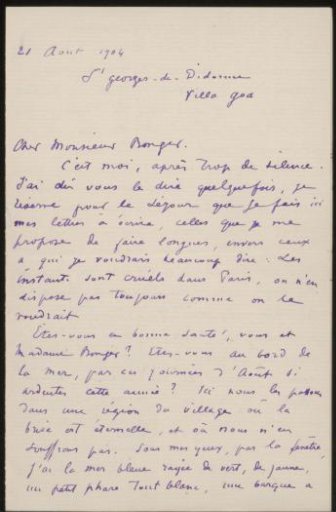 21 Aout 1904
St georges-de-Didonne
Villa Goa
Cher Monsieur Bonger.
C'est moi, après trop de silence.
J'ai dû vous le dire quelquefois, je
réserve pour le séjour que je fais ici
mes lettres à écrire, celles que je me
propose de faire longues, envers ceux
a qui je voudrais beaucoup dire. Les
instants sont cruels dans Paris, on n'en
dispose pas toujours comme on le
voudrait
Êtes-vous en bonne santé, vous et
Madame Bonger? Êtes-vous au bord de
la mer, par ces journées d'Août si
ardentes cette année? Ici nous les passons
dans une région du village où la
brise est éternelle, et où nous n'en
souffrons pas. Sous mes yeux, par la fenêtre,
j'ai la mer bleue rayée de vert, de jaune,
un petit phare tout blanc, une barque a